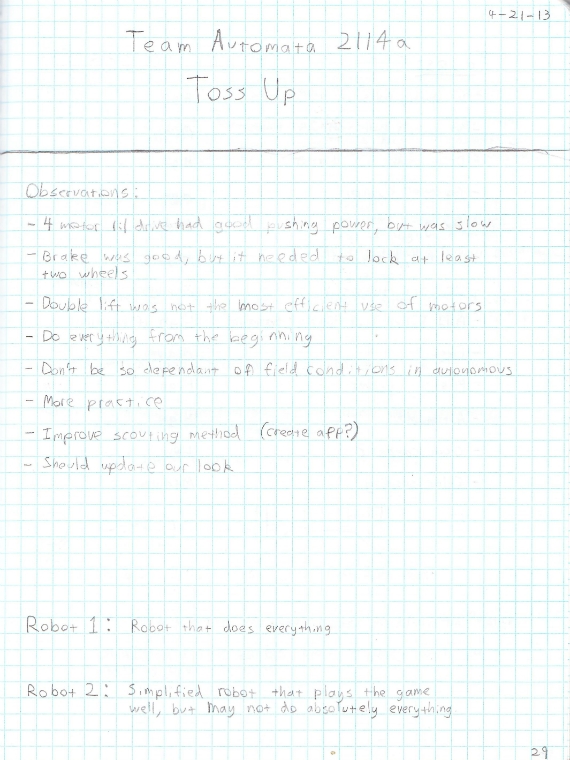 4-21-13
Team Automata 2114a
Toss Up
Observations:
- 4 motor 1:1 drive had good pushing power, but was slow
- Brake was good, but it needed to lock at least
two wheels
- Double lift was not the most efficient use of motors
- Do everything from the beginning
- Don't be so dependant on field conditions in autonomous
- More practice
- Improve scouting method (create app?)
- Should update our look
Robot 1: Robot that does everything
Robot 2: Simplified robot that plays the game
well, but may not do absolutely everything
29